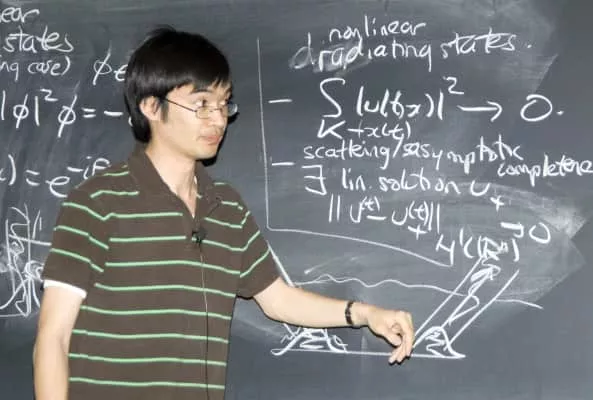 ear
states
ng case)
|ϕ|²ϕ = −
) = e^{-i
nonlinear
radiating states.
− ∫ |u(t,x)|² → 0.
K+x(t)
− scattering/asymptotic
completene
∃ lin. solution u₊
||u(t) − u₊(t)||
H¹(ℝⁿ) → 0